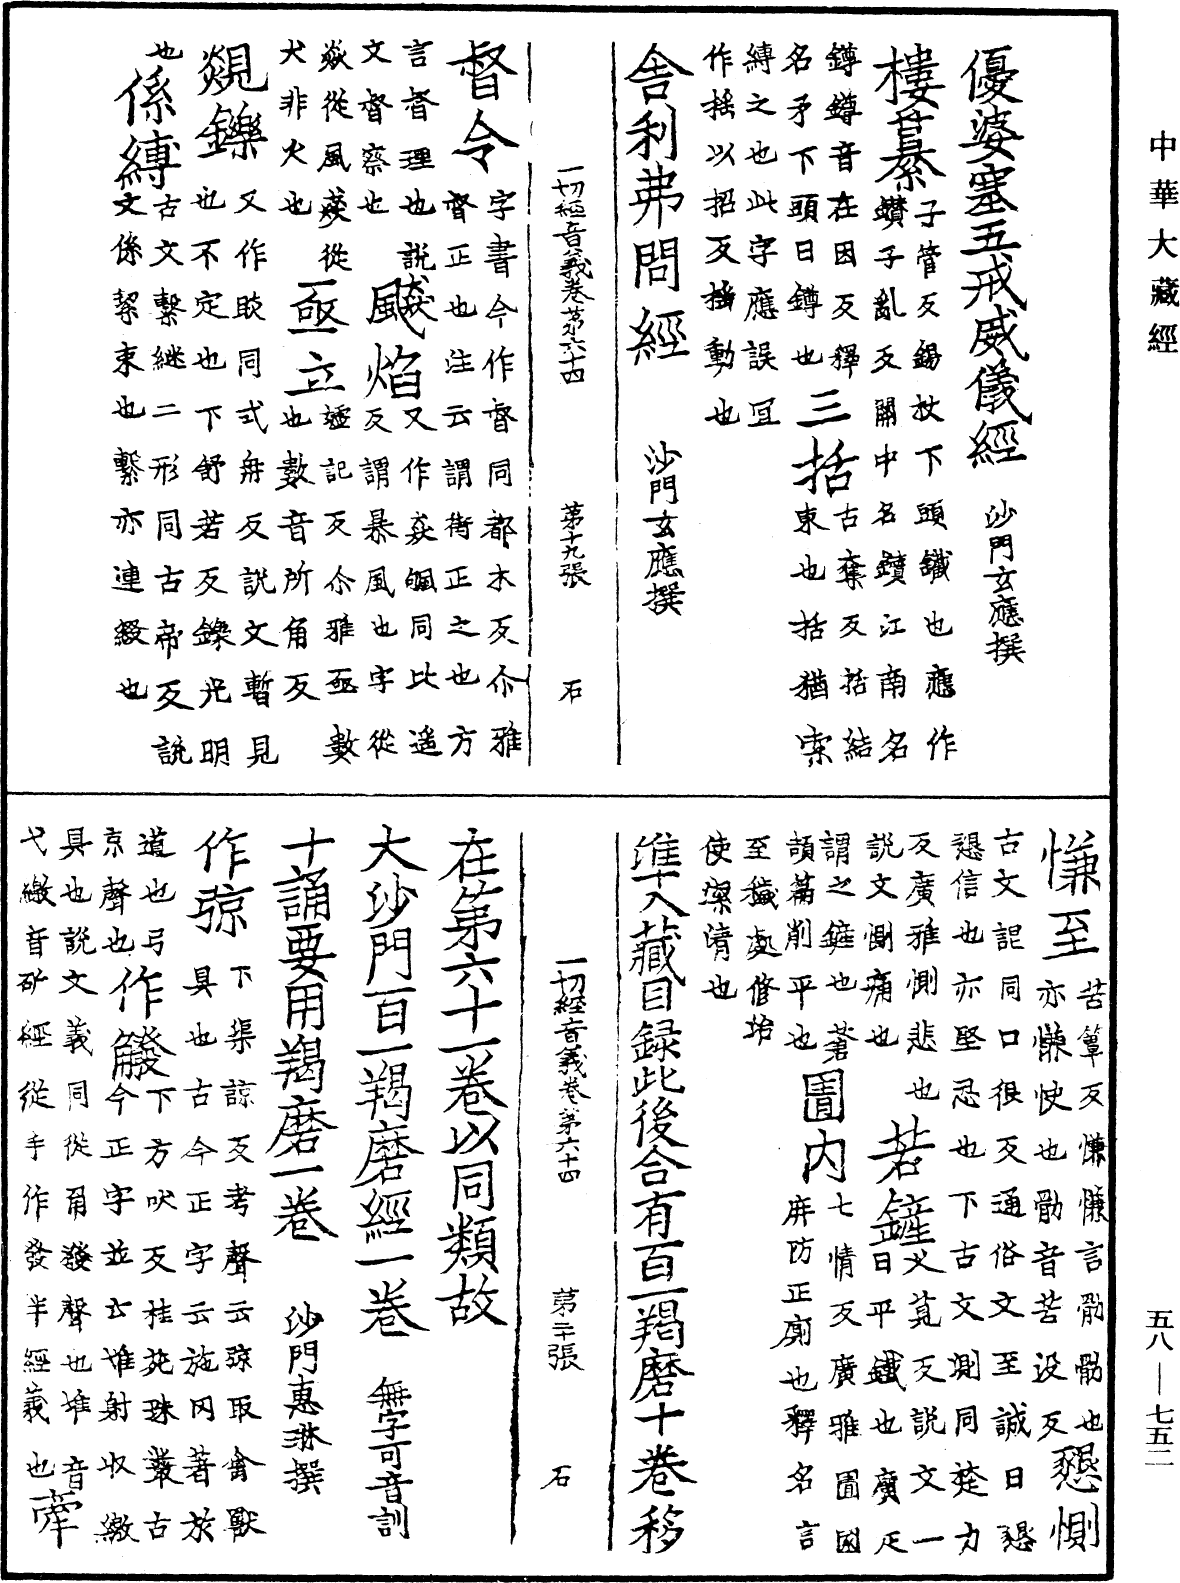 中華大藏經
優婆塞五戒威儀經　沙門玄應撰
樓纂 子管反錫杖下頭鐵也應作
鑽子亂反關中名鑽江南名
鐏鐏音在困反釋
名矛下頭曰鐏也 三括 古奪反括結
束也括猶索
縛之也此字應誤冝
作搖以招反搖動也
舍利弗問經　沙門玄應撰
一切經音義卷第六十四　第十九張　石
督令 字書今作督同都木反尒雅
督正也注云謂街正之也方
言督理也説
文督察也 飈焰 又作猋颯同比遥
反謂暴風也字從
猋從風猋從
犬非火也 亟立 墟記反尒雅亟數
也數音所角反
覢鑠 又作睒同式冉反説文暫見
也不定也下舒若反鑠光明
也 係縛 古文繫継二形同古帝反説
文係絜束也繫亦連綴也
慊至 苦簟反慊慊言劬劬也
亦慊快也劬音苦没反 懇惻
古文詪同口很反通俗文至誠曰懇
懇信也亦堅忍也下古文測同楚力
反廣雅惻悲也
説文惻痛也 若鏟 又莧反説文一
曰平鐵也廣疋
謂之鏟也蒼
頡篇削平也 圊内 七情反廣雅圊圂
庰防正廁也釋名言
至穢處修治
使潔清也
準入藏目録此後合有百一羯磨十卷移
一切經音義卷第六十四　第二十張　石
在第六十一卷以同類故
大沙門百一羯磨經一卷　無字可音訓
十誦要用羯磨一卷　沙門惠琳撰
作弶 下渠諒反考聲云弶取禽獸
具也古今正字云施冈著於
道也弓
京聲也 作𧤅 下方吠反桂苑珠叢古
今正字並云惟射收繳
具也説文義同從角發聲也惟音
弋繳音矿經從手作發半經義也 牽
五八—七五二